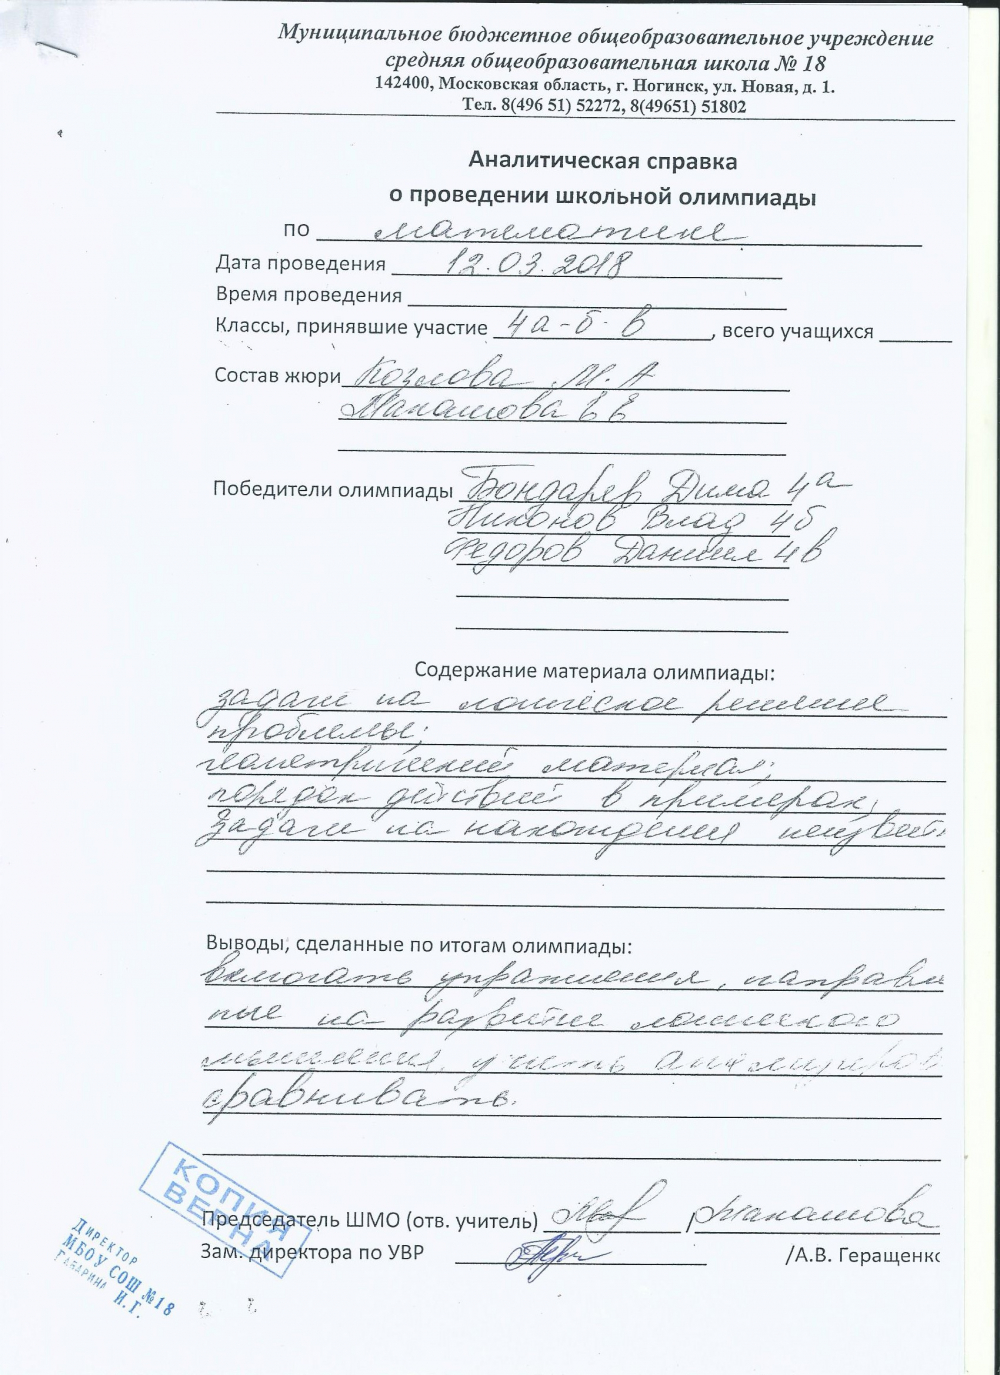 Муниципальное бюджетное общеобразовательное учреждение
средняя общеобразовательная школа № 18
142400, Московская область, г. Ногинск, ул. Новая, д. 1.
Тел. 8(496 51) 52272, 8(49651) 51802
Аналитическая справка
о проведении школьной олимпиады
по математике
Дата проведения 12.03.2018
Время проведения
Классы, принявшие участие 4а-б-в, всего учащихся
Состав жюри Козлова М.А
Е Е
Победители олимпиады Бондарев Дима 4а
Никонов Влад 4б
Федоров Даниил 4в
Содержание материала олимпиады:
задачи на логическое решение
проблемы;
геометрический материал;
порядок действий в примерах;
Задачи на нахождения неизвестн
Выводы, сделанные по итогам олимпиады:
упражнения, направлен
ные на развитие логического
мышления, учить анализиров
сравнивать.
КОПИЯ
ВЕРНА
Председатель ШМО (отв. учитель) /
Зам. директора по УВР /А.В. Геращенко
ДИРЕКТОР
МБОУ СОШ №18
ГАГАРИНА
И.Г.